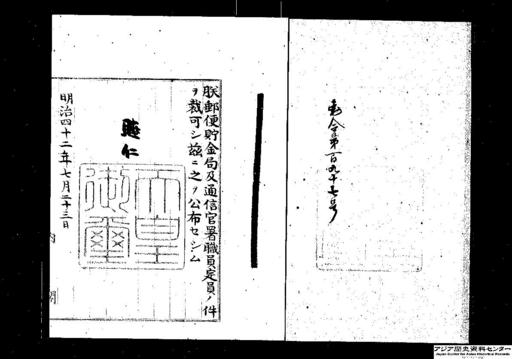 勅令第百九十七号
朕郵便貯金局及通信官署職員定員ノ件
ヲ裁可シ茲ニ之ヲ公布セシム
睦仁
天皇
御璽
明治四十二年七月二十三日
内
閣
アジア歴史資料センター
Japan Center for Asian Historical Records